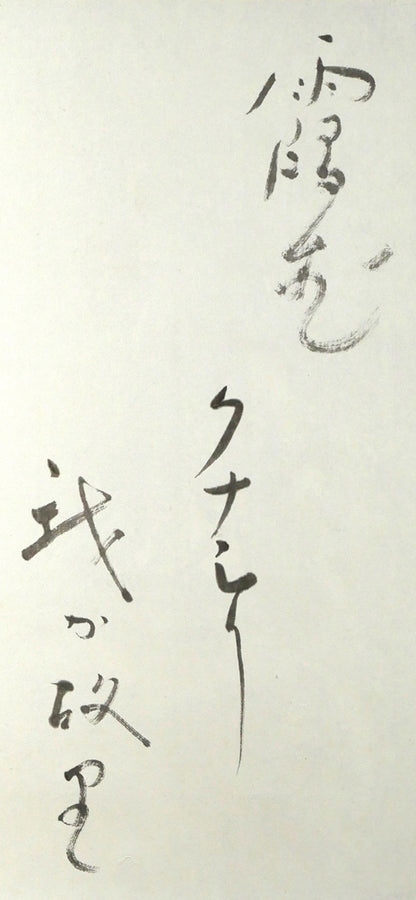 霞む
クナシリ
我か故里